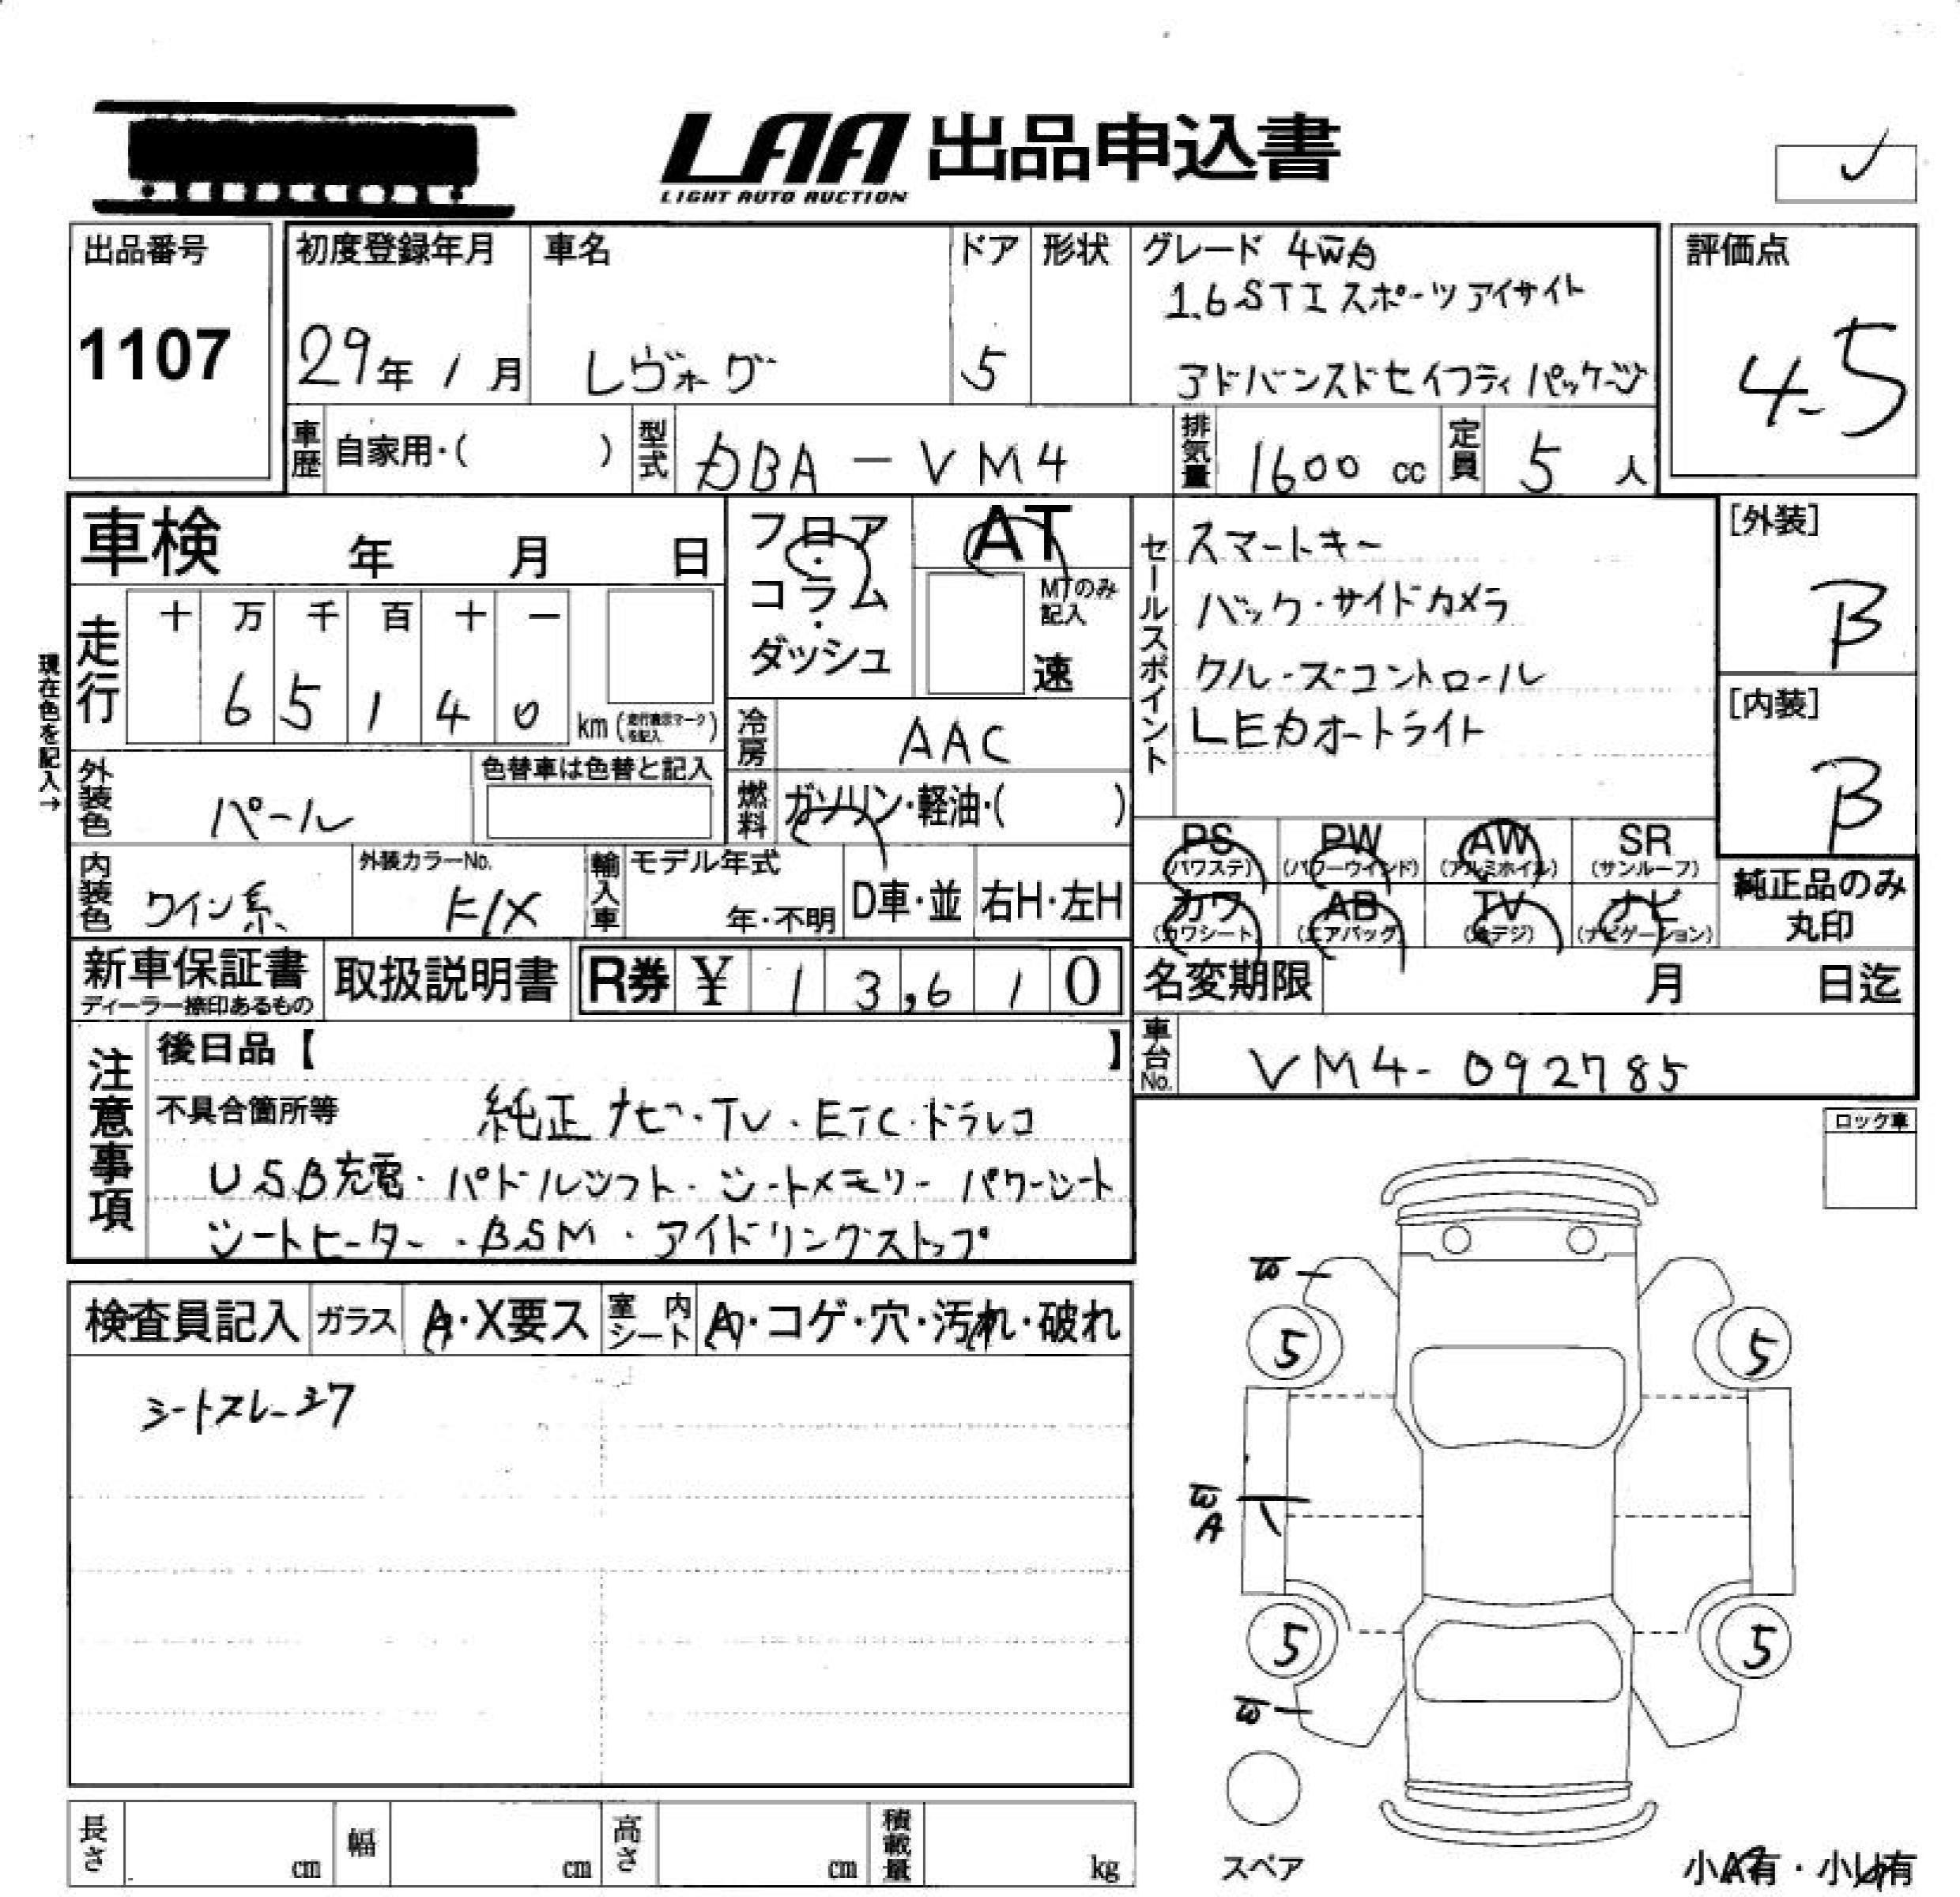 LAA 出品申込書
LIGHT AUTO AUCTION
出品番号
1107
初度登録年月
29年 1月
車名
レヴォーグ
ドア
5
形状
グレード 4WD
1.6 STI スポーツアイサイト
アドバンスドセイフティパッケージ
評価点
4.5
車歴
自家用・( )
型式
DBA-VM4
排気量
1600 cc
定員
5 人
車検 年 月 日
フロア・コラム・ダッシュ
AT
MTのみ記入
速
セールスポイント
スマートキー
バック・サイドカメラ
クルーズコントロール
LEDオートライト
[外装]
B
[内装]
B
現在色を記入→
走行
十 万 千 百 十 一
6 5 1 4 0
km (走行表示マークを記入)
冷房
AAC
外装色
パール
色替車は色替と記入
燃料
ガソリン・軽油・( )
PS
(パワステ)
PW
(パワーウインド)
AW
(アルミホイル)
SR
(サンルーフ)
カワ
(カワシート)
AB
(エアバック)
TV
(地デジ)
ナビ
(ナビゲーション)
純正品のみ
丸印
内装色
ワイン系
外装カラーNo.
K1X
輸入車
モデル年式
年・不明
D車・並
右H・左H
新車保証書
ディーラー捺印あるもの
取扱説明書
R券 ¥ 1 3,6 1 0
名変期限 月 日迄
車台No.
VM4-092785
注意事項
後日品【 】
不具合箇所等
純正ナビ・TV・ETC・ドラレコ
USB充電・パドルシフト・シートメモリー パワーシート
シートヒーター・BSM・アイドリングストップ
ロック車
検査員記入
ガラス
A・X要ス
室内シート
A・コゲ・穴・汚れ・破れ
シートスレ・シワ
W
5
5
W
A
5
5
W
スペア
長さ cm
幅 cm
高さ cm
積載量 kg
小A有・小U有